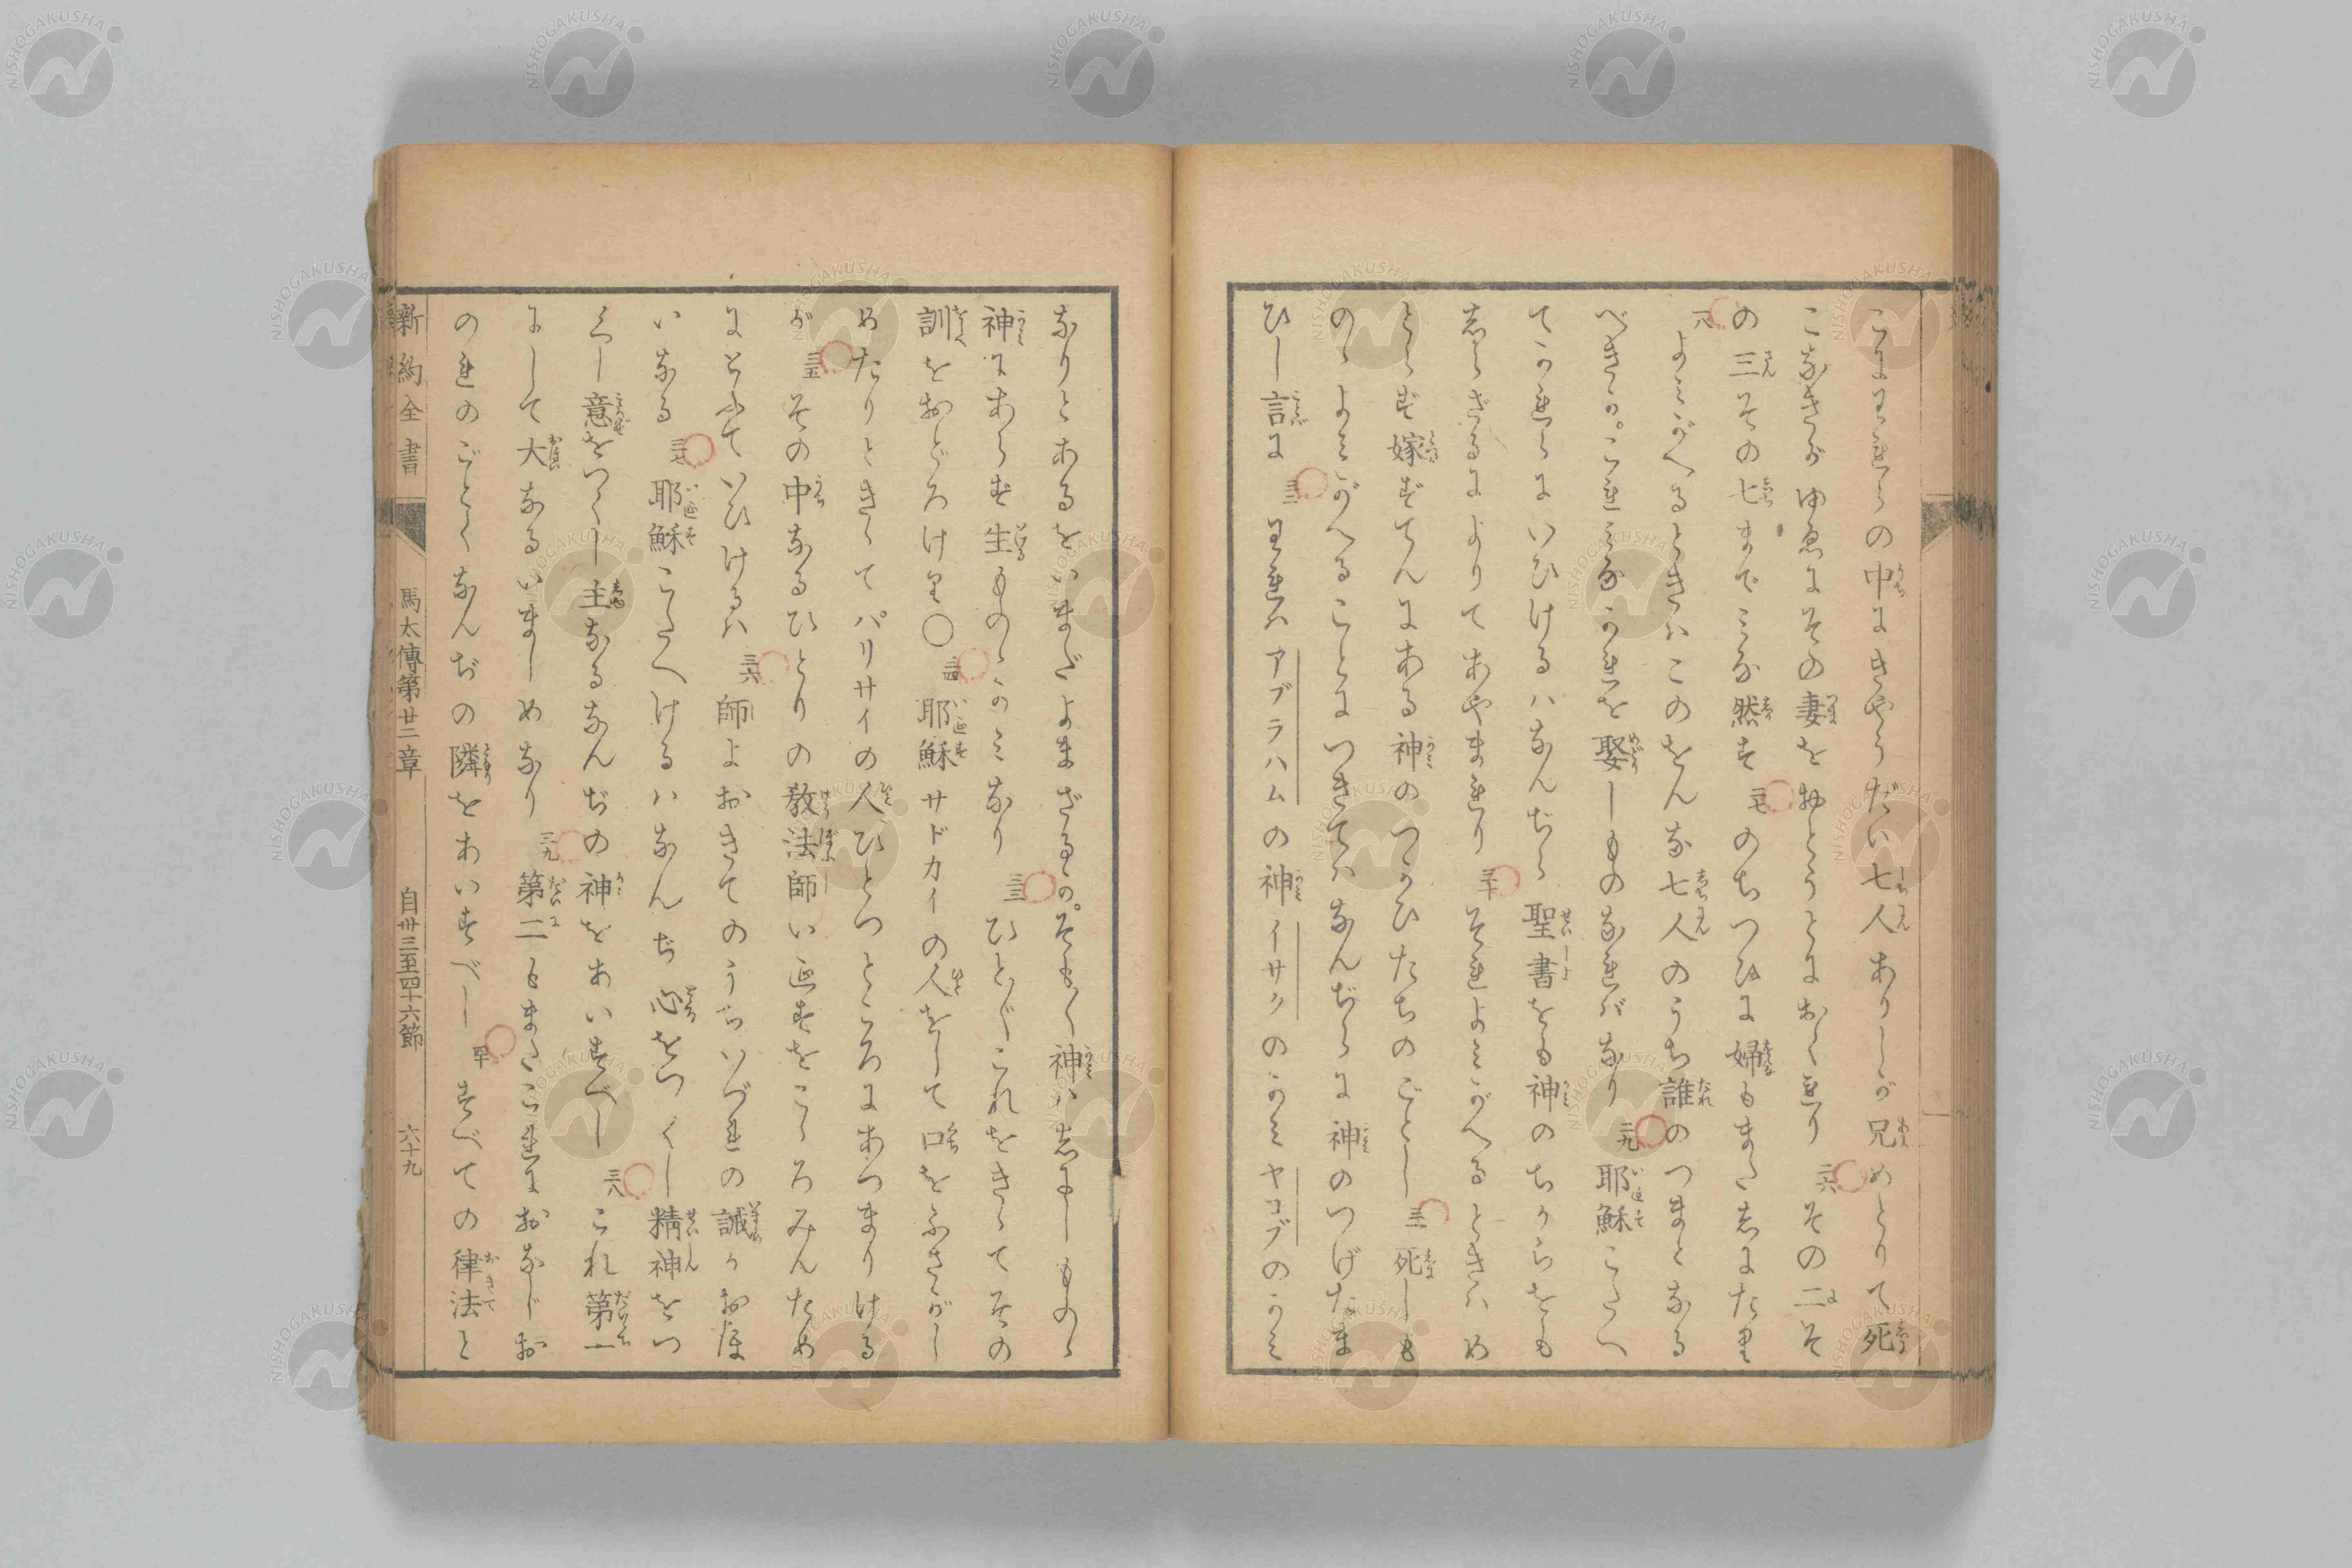 こにわれらの中にきやうだい七人ありしが兄めとりて死
こなきがゆゑにその妻をおとうとにおくれり 二六 その二そ
の三その七までみな然す 二七 のちつひに婦もまた志にたり
二八 よみがへるときハこのをんな七人のうち誰のつまとなる
べきか。これみなかれを娶しものなれバなり 二九 耶穌こたへ
てかれらにいひけるハなんぢら聖書をも神のちからをも
志らざるによりてあやまれり 三十 それよみがへるときハめ
とらず嫁ずてんにある神のつかひたちのごとし 三一 死しも
のゝよみがへることにつきてハなんぢらに神のつげたま
ひし言に 三二 われハアブラハムの神イサクのかみヤコブのかみ
なりとあるをいまだよまざるか。そもそも神ハ志にしものゝ
神にあらず生ものゝかみなり 三三 ひとびとこれをきゝてその
訓をおどろけり〇 三四 耶穌サドカイの人をして口をふさがし
めたりときゝてパリサイの人ひとつところにあつまりける
が 三五 その中なるひとりの教法師いゑすをこゝろみんため
にとふていひけるハ 三六 師よおきてのうちいづれの誡かおほ
いなる 三七 耶穌こたへけるハなんぢ心をつくし精神をつ
くし意をつくし主なるなんぢの神をあいすべし 三八 これ第一
にして大なるいましめなり 三九 第二もまたこれにおなじお
のれのごとくなんぢの隣をあいすべし 四十 すべての律法と
新約全書 馬太傳第廿二章 自卅三至四十六節 六十九